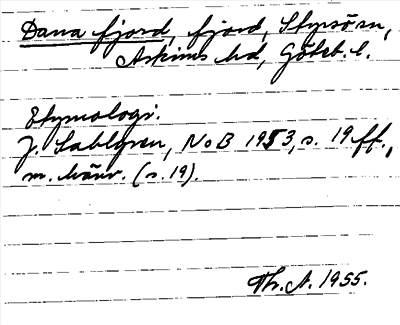 Dana fjord, fjord, Styrsö sn,
Askims hd, Göteb. l.
Etymologi.
J. Sahlgren, NoB 1953, s. 19 ff.,
m. hänv. (s. 19).
Th. A. 1955.